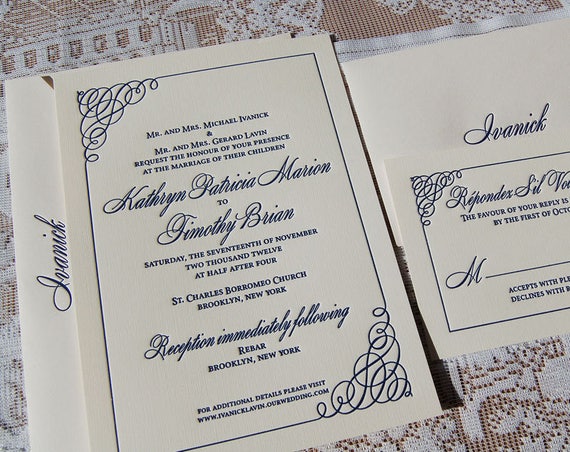 Mr. and Mrs. Michael Ivanick
&
Mr. and Mrs. Gerard Lavin
request the honour of your presence
at the marriage of their children
Kathryn Patricia Marion
to
Timothy Brian
Saturday, the seventeenth of November
two thousand twelve
at half after four
St. Charles Borromeo Church
Brooklyn, New York
Reception immediately following
Rebar
Brooklyn, New York
for additional details please visit
www.ivanicklavin.ourwedding.com
Ivanick
Ivanick
Répondez S'il Vou
The favour of your reply is
by the first of Octo
M
accepts with ple
declines with re